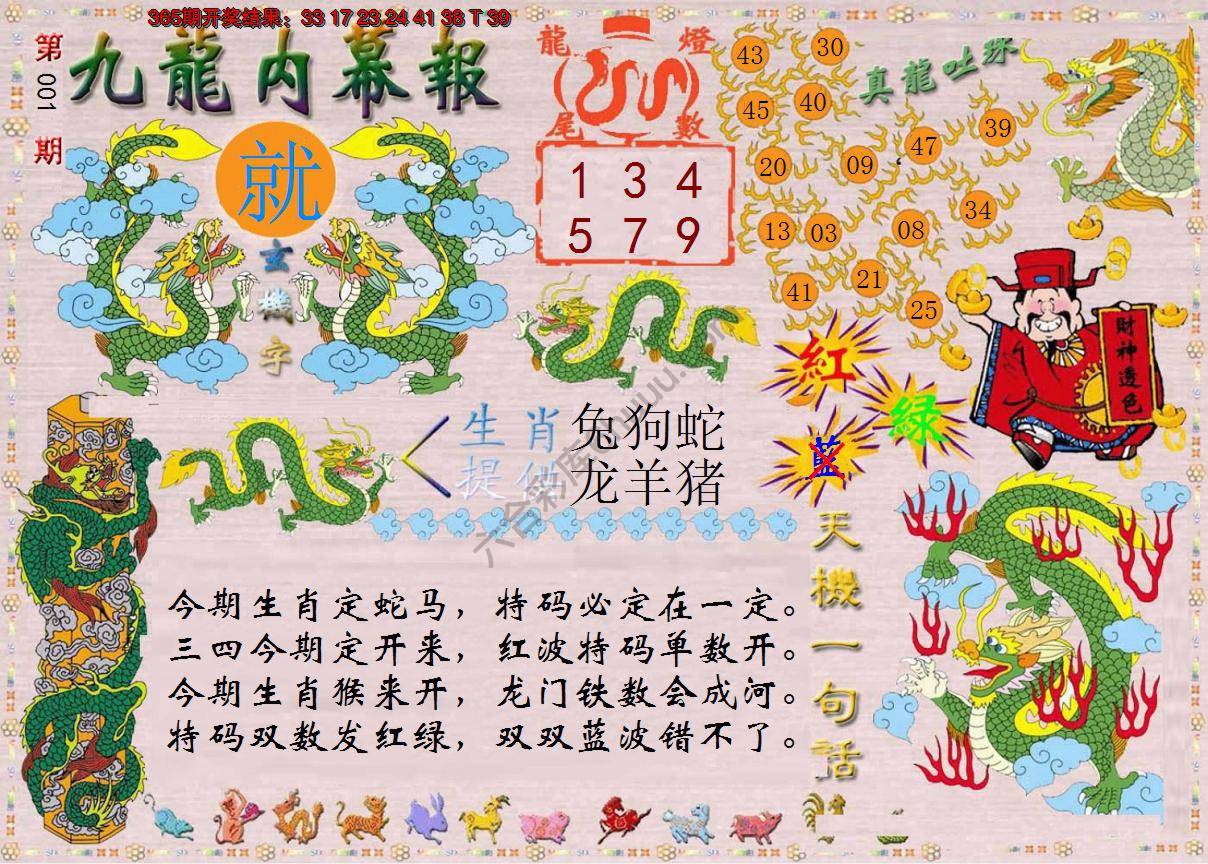 365期开奖结果：33 17 23 24 41 38 T 39
第001期
九龍内幕報
就
玄機字
龍燈尾數
1 3 4
5 7 9
真龍吐珠
43 30
45 40
20 09 47 39
13 03 08 34
41 21 25
財神透色
紅
綠
藍
生肖提供
兔狗蛇
龙羊猪
天機一句話
今期生肖定蛇马，特码必定在一定。
三四今期定开来，红波特码单数开。
今期生肖猴来开，龙门铁数会成河。
特码双数发红绿，双双蓝波错不了。